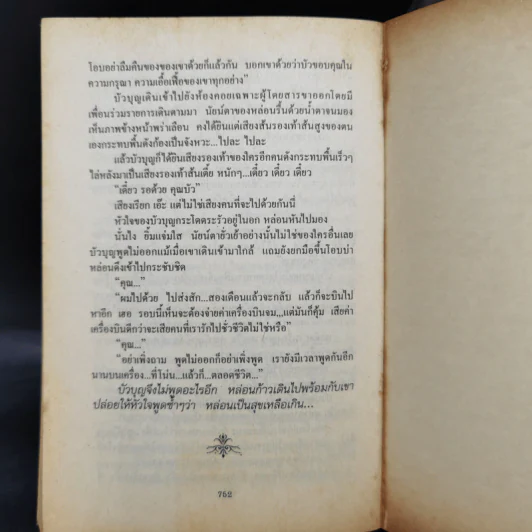 โอบอย่าลืมคืนของของเขาด้วยก็แล้วกัน บอกเขาด้วยว่าบัวขอบคุณใน
ความกรุณา ความเอื้อเฟื้อของเขาทุกอย่าง”
บัวบุญเดินเข้าไปยังห้องคอยเฉพาะผู้โดยสารขาออกโดยมี
เพื่อนร่วมรายการเดินตามมา นัยน์ตาของหล่อนรื้นด้วยน้ำตาจนมอง
เห็นภาพข้างหน้าพร่าเลือน คงได้ยินแต่เสียงส้นรองเท้าส้นสูงของตน
เองกระทบพื้นดังก้องเป็นจังหวะ...ไปละ ไปละ
แล้วบัวบุญก็ได้ยินเสียงรองเท้าของใครอีกคนดังกระทบพื้นเร็วๆ
ไล่หลังมาเป็นเสียงรองเท้าส้นเตี้ย หนักๆ...เดี๋ยว เดี๋ยว เดี๋ยว
“เดี๋ยว รอด้วย คุณบัว”
เสียงเรียก เอ๊ะ แต่ไม่ใช่เสียงคนที่จะไปด้วยกันนี่
หัวใจของบัวบุญกระโดดระรัวอยู่ในอก หล่อนหันไปมอง
นั่นไง ยิ้มแจ่มใส นัยน์ตายั่วเย้าอย่างนั้นไม่ใช่ของใครอื่นเลย
บัวบุญพูดไม่ออกแม้เมื่อเขาเดินเข้ามาใกล้ แถมยังยกมือขึ้นโอบบ่า
หล่อนดึงเข้าไปกระชับชิด
“คุณ...”
“ผมไปด้วย ไปส่งสัก...สองเดือนแล้วจะกลับ แล้วก็จะบินไป
หาอีก เฮอ รอบนี้เห็นจะต้องจ่ายค่าเครื่องบินจม...แต่มันก็คุ้ม เสียค่า
เครื่องบินดีกว่าจะเสียคนที่เรารักไปชั่วชีวิตไม่ใช่หรือ”
“คุณ...”
“อย่าเพิ่งถาม พูดไม่ออกก็อย่าเพิ่งพูด เรายังมีเวลาพูดกันอีก
นานบนเครื่อง...ที่โน่น...แล้วก็...ตลอดชีวิต...”
บัวบุญจึงไม่พูดอะไรอีก หล่อนก้าวเดินไปพร้อมกับเขา
ปล่อยให้หัวใจพูดซ้ำๆว่า หล่อนเป็นสุขเหลือเกิน...
752